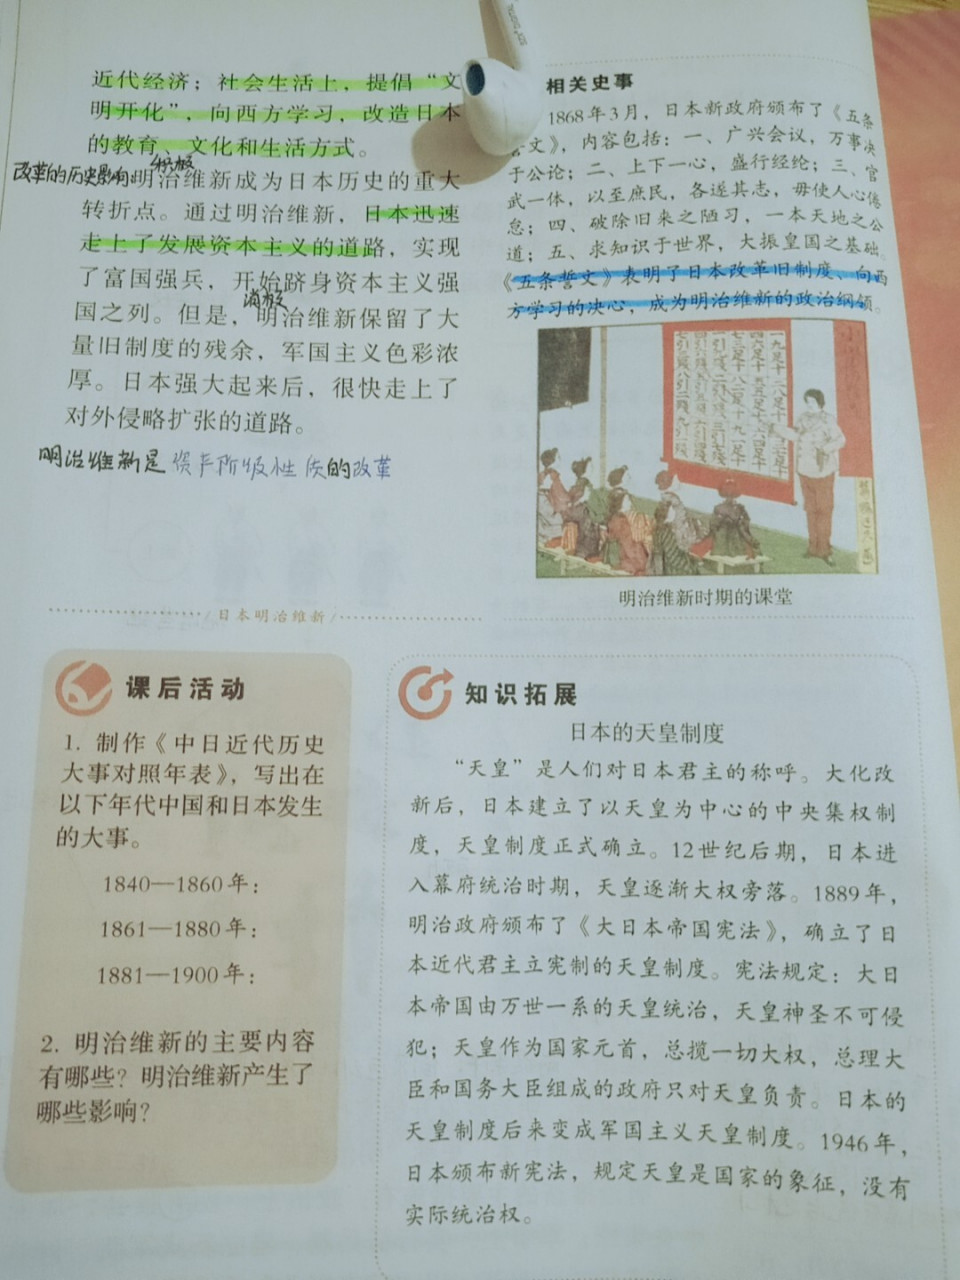 近代经济；社会生活上，提倡“文
明开化”，向西方学习，改造日本
的教育、文化和生活方式。
改革的历史影响：积极
明治维新成为日本历史的重大
转折点。通过明治维新，日本迅速
走上了发展资本主义的道路，实现
了富国强兵，开始跻身资本主义强
国之列。但是，明治维新保留了大
消极
量旧制度的残余，军国主义色彩浓
厚。日本强大起来后，很快走上了
对外侵略扩张的道路。
明治维新是资产阶级性质的改革
相关史事
1868年3月，日本新政府颁布了《五条
誓文》，内容包括：一、广兴会议，万事决
于公论；二、上下一心，盛行经纶；三、官
武一体，以至庶民，各遂其志，毋使人心倦
怠；四、破除旧来之陋习，一本天地之公
道；五、求知识于世界，大振皇国之基础。
《五条誓文》表明了日本改革旧制度、向西
方学习的决心，成为明治维新的政治纲领。
明治维新时期的课堂
日本明治维新
课后活动
1. 制作《中日近代历史
大事对照年表》，写出在
以下年代中国和日本发生
的大事。
1840—1860年：
1861—1880年：
1881—1900年：
2. 明治维新的主要内容
有哪些？明治维新产生了
哪些影响？
知识拓展
日本的天皇制度
“天皇”是人们对日本君主的称呼。大化改
新后，日本建立了以天皇为中心的中央集权制
度，天皇制度正式确立。12世纪后期，日本进
入幕府统治时期，天皇逐渐大权旁落。1889年，
明治政府颁布了《大日本帝国宪法》，确立了日
本近代君主立宪制的天皇制度。宪法规定：大日
本帝国由万世一系的天皇统治，天皇神圣不可侵
犯；天皇作为国家元首，总揽一切大权，总理大
臣和国务大臣组成的政府只对天皇负责。日本的
天皇制度后来变成军国主义天皇制度。1946年，
日本颁布新宪法，规定天皇是国家的象征，没有
实际统治权。